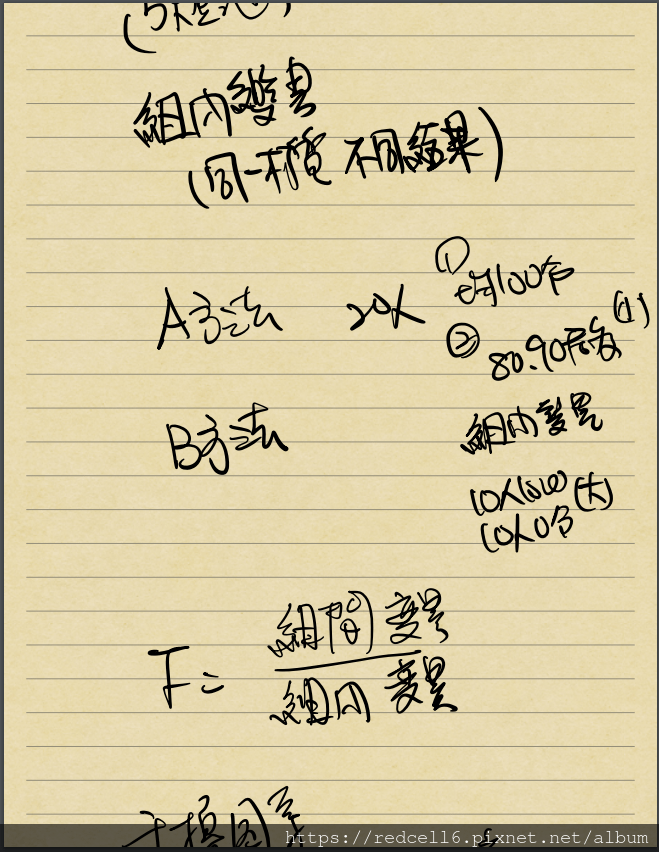 組內變異
(同一種 不同結果)
A方法 20人 ① 都100分
② 80.90左右 (小)
B方法 組內變異
10人100 (大)
10人0分
F = 組間變異
組內變異
干擾因子
https://redcell6.pixnet.net/album